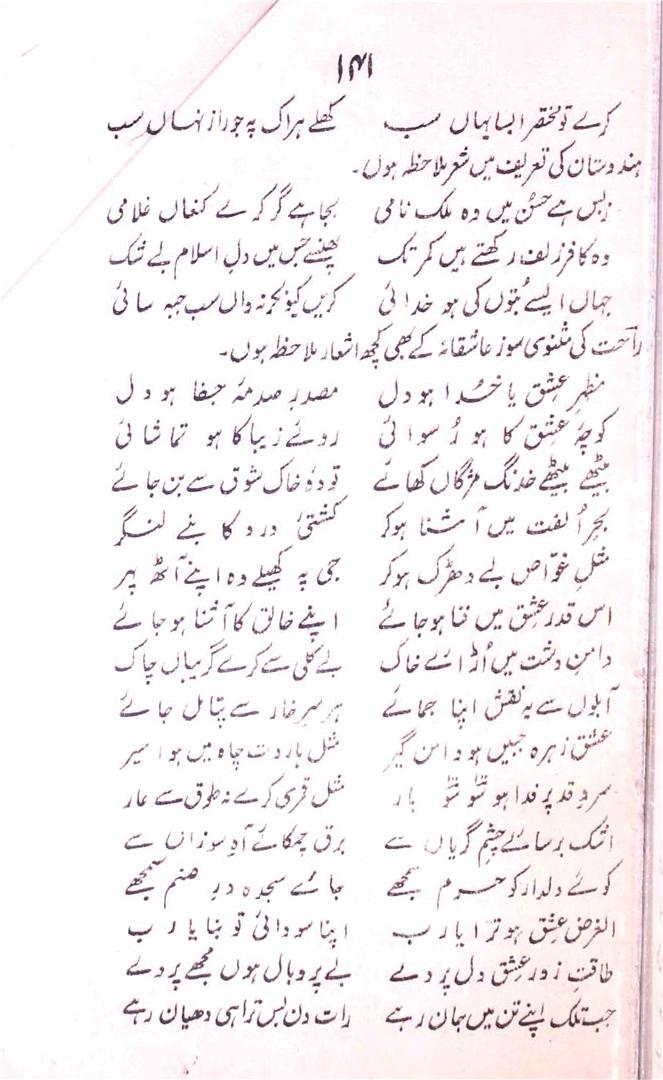 ۱۴۱
کرے تو مختصر ایسا یہاں سب کھلے ہر اک پہ جو راز نہاں سب
ہندوستان کی تعریف میں شعر ملاحظہ ہوں۔
زبس ہے حسُن میں وہ ملک نامی بجا ہے گر کرے کنعاں غلامی
وہ کافر زلف رکھتے ہیں کمر تک پھنسے جس میں دلِ اسلام بے شک
جہاں ایسے بُتوں کی ہو خدائی کریں کیونکر نہ واں سب جبہ سائی
راحت کی مثنوی سوز عاشقانہ کے بھی کچھ اشعار ملاحظہ ہوں۔
مظہرِ عِشق یا خُدا ہو دل مصدرِ صدمۂ جفا ہو دل
کوچۂ عِشق کا ہو رُسوائی روئے زیبا کا ہو تماشائی
بیٹھے بیٹھے خدنگ مژگاں کھائے تودۂ خاک شوق سے بن جائے
بحرِ اُلفت میں آشنا ہوکر کشتیٔ درد کا بنے لنگر
مثلِ غوّاص بے دھڑک ہوکر جی پہ کھیلے وہ اپنے آٹھ پہر
اس قدر عِشق میں فنا ہوجائے اپنے خالق کا آشنا ہو جائے
دامنِ دشت میں اُڑائے خاک بے کلی سے کرے گریباں چاک
آبلوں سے یہ نقش اپنا جمائے ہر سرِ خار سے پتا مل جائے
عشق زہرہ جبیں ہو دامن گیر مثل ہاروت چاہ میں ہو اسیر
سرو قد پر فدا ہو سَو سَو بار مثل قمری کرے نہ طوق سے عار
اشک برسائے چشمِ گریاں سے برق چمکائے آہِ سوزاں سے
کوئے دلدار کو حرم سمجھے جائے سجدہ درِ صنم سمجھے
الغرض عِشق ہو ترا یارب اپنا سودائی تو بنا یارب
طاقتِ زورِ عِشق دل پر دے بے پر و بال ہوں مجھے پر دے
جب تلک اپنے تن میں جان رہے رات دن بس ترا ہی دھیان رہے